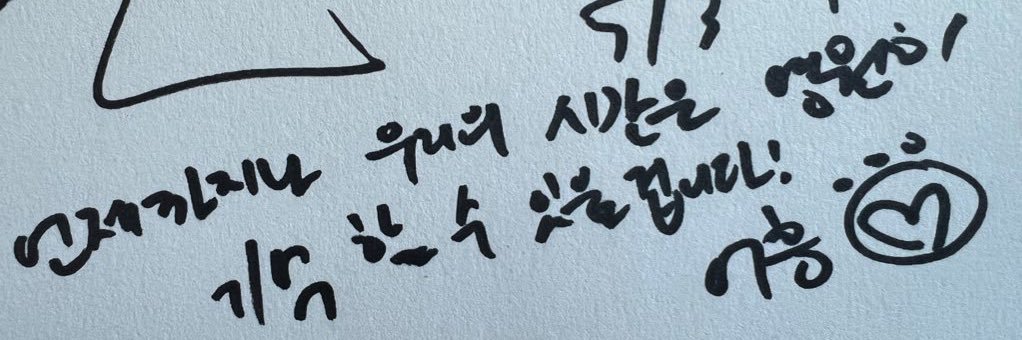 언제까지나 우리의 시간은 영원히
기억 할 수 있을 겁니다!